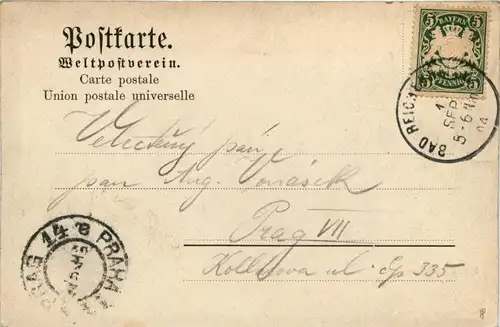 Postkarte.
Weltpostverein.
Carte postale
Union postale universelle
BAYERN
5 5
5 PFENNIG 5
BAD REICH
1
SEP
5-6 N
04
Velectený pán,
pan Aug. Vonásek
Prag VII
ul. čp 335
PRAG 14 8 PRAHA
8